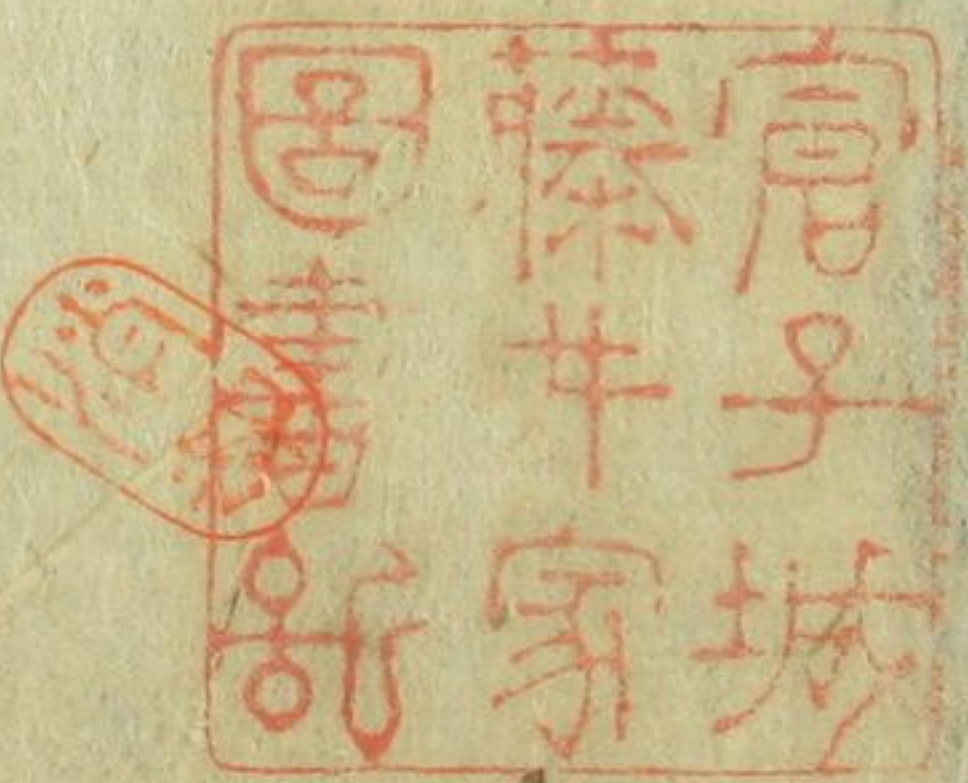 宮子城
藤井家
圖書記